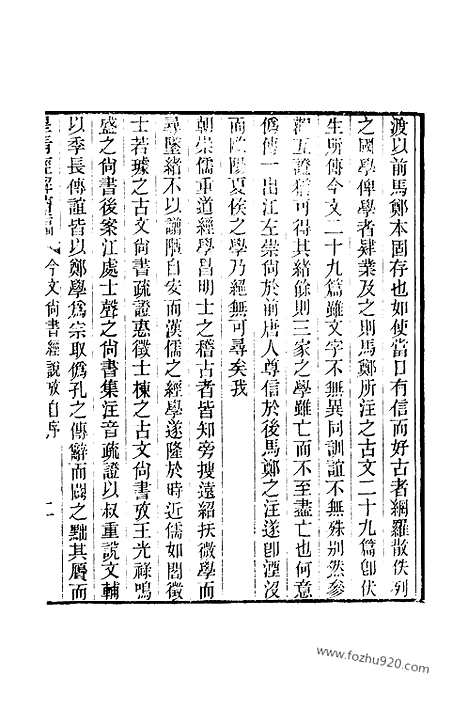 渡以前馬鄭本固存也如使當日有信而好古者網羅散佚列
之國學俾學者肄業及之則馬鄭所注之古文二十九篇卽伏
生所傳今文二十九篇雖文字不無異同訓誼不無殊別然參
觀互證猶可得其緒餘則三家之學雖亡而不至盡亡也何意
僞傳一出江左崇尙於前唐人尊信於後馬鄭之注遂卽湮沒
而歐陽夏侯之學乃絕無可尋矣我
朝崇儒重道經學昌明士之稽古者皆知旁搜遠紹扶微學而
尋墜緒不以謭陋自安而漢儒之經學遂隆於時近儒如閻徵
士若璩之古文尙書疏證惠徵士棟之古文尙書攷王光祿鳴
盛之尙書後案江處士聲之尙書集注音疏證以叔重說文輔
以季長傳誼皆以鄭學爲宗取僞孔之傳辭而闢之黜其贗而
皇淸經解續編 今文尙書經說攷自序 二
www.fozhu920.com